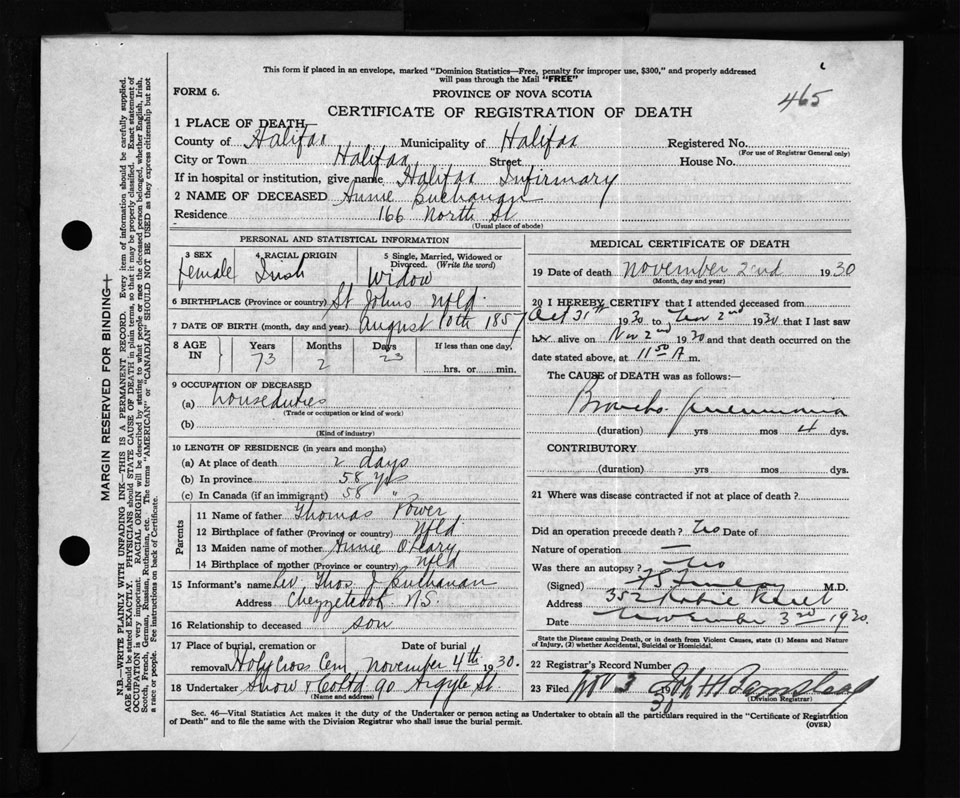 This form if placed in an envelope, marked "Dominion Statistics—Free, penalty for improper use, $300," and properly addressed
will pass through the Mail "FREE"
FORM 6.
PROVINCE OF NOVA SCOTIA
465
CERTIFICATE OF REGISTRATION OF DEATH
1 PLACE OF DEATH—
County of Halifax Municipality of Halifax Registered No.
(For use of Registrar General only)
City or Town Halifax Street House No.
If in hospital or institution, give name Halifax Infirmary
2 NAME OF DECEASED Annie Buchanan
Residence 166 North St
(Usual place of abode)
PERSONAL AND STATISTICAL INFORMATION
3 SEX 4 RACIAL ORIGIN 5 Single, Married, Widowed or
Divorced. (Write the word)
female Irish Widow
6 BIRTHPLACE (Province or country) St Johns Nfld.
7 DATE OF BIRTH (month, day and year) August 10th 1857
8 AGE IN Years Months Days If less than one day,
73 2 23 hrs. or min.
9 OCCUPATION OF DECEASED
(a) house duties
(Trade or occupation or kind of work)
(b)
(Kind of industry)
10 LENGTH OF RESIDENCE (in years and months)
(a) At place of death 2 days
(b) In province 58 yrs
(c) In Canada (if an immigrant) 58 "
Parents
11 Name of father Thomas Power
12 Birthplace of father (Province or country) Nfld
13 Maiden name of mother Annie O'Leary
14 Birthplace of mother (Province or country) Nfld
15 Informant's name Rev. Thos. J Buchanan
Address Chezzetcook N.S.
16 Relationship to deceased son
17 Place of burial, cremation or Date of burial
removal Holy Cross Cem November 4th 1930.
18 Undertaker Snow & Co Ltd 90 Argyle St.
(Name and address)
MEDICAL CERTIFICATE OF DEATH
19 Date of death November 2nd 1930
(Month, day and year)
20 I HEREBY CERTIFY that I attended deceased from
Oct 31st 1930 to Nov 2nd 1930 that I last saw
her alive on Nov 2nd 1930 and that death occurred on the
date stated above, at 11 50 A m.
The CAUSE of DEATH was as follows:—
Broncho. pneumonia
(duration) yrs mos 4 dys.
CONTRIBUTORY
(duration) yrs mos dys.
21 Where was disease contracted if not at place of death?
Did an operation precede death? No Date of
Nature of operation —
Was there an autopsy? No
(Signed) M.D.
Address 352 Robie Street
Date November 3rd 1930.
State the Disease Causing Death, or in death from Violent Causes, state (1) Means and Nature
of Injury, (2) whether Accidental, Suicidal or Homicidal.
22 Registrar's Record Number
23 Filed Nov 3 1930 John H Barnstead
(Division Registrar)
Sec. 46—Vital Statistics Act makes it the duty of the Undertaker or person acting as Undertaker to obtain all the particulars required in the "Certificate of Registration
of Death" and to file the same with the Division Registrar who shall issue the burial permit.
(OVER)
MARGIN RESERVED FOR BINDING
N.B.—WRITE PLAINLY WITH UNFADING INK—THIS IS A PERMANENT RECORD. Every item of information should be carefully supplied.
AGE should be stated EXACTLY. PHYSICIANS should STATE CAUSE OF DEATH in plain terms, so that it may be properly classified. Exact statement of
OCCUPATION is very important. RACIAL ORIGIN will be described by stating to what people or race the deceased person belonged, whether English, Irish,
Scotch, French, German, Russian, Ruthenian, etc. The terms "AMERICAN" or "CANADIAN" SHOULD NOT BE USED as they express citizenship but not
a race or people. See instructions on back of Certificate.